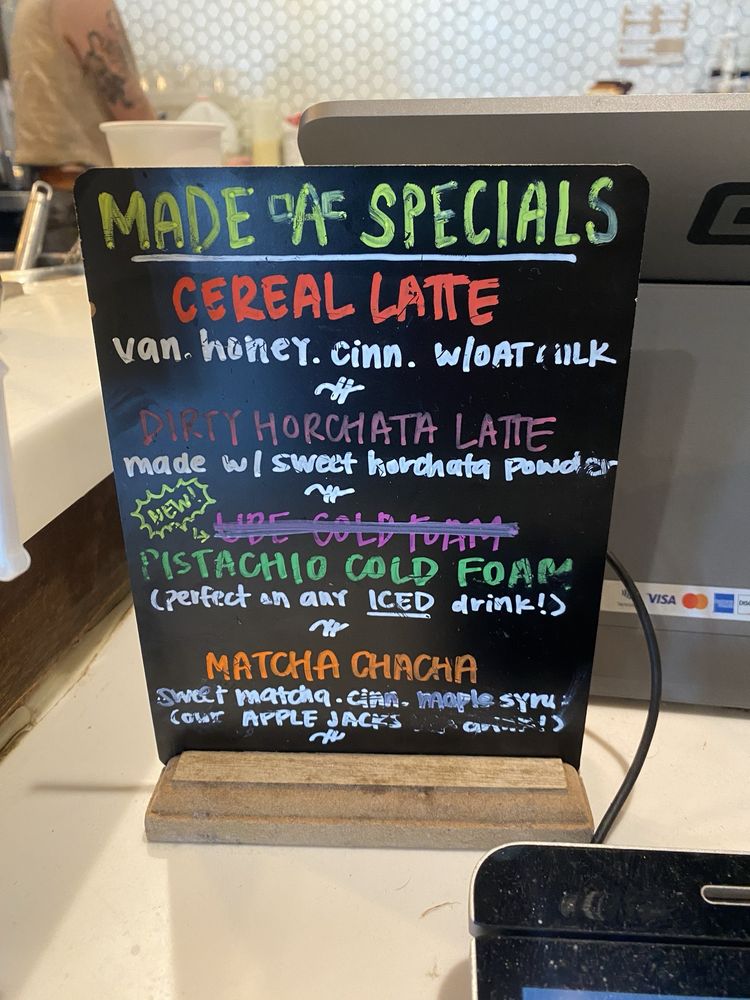 MADE AF SPECIALS
CEREAL LATTE
van. honey. cinn. w/OAT
DIRTY HORCHATA LATTE
made w/ sweet horchata powder
NEW!
UBE COLD FOAM
PISTACHIO COLD FOAM
(perfect on any ICED drink!)
MATCHA CHACHA
sweet matcha. cinn. maple
(our APPLE JACKS drink!)
VISA